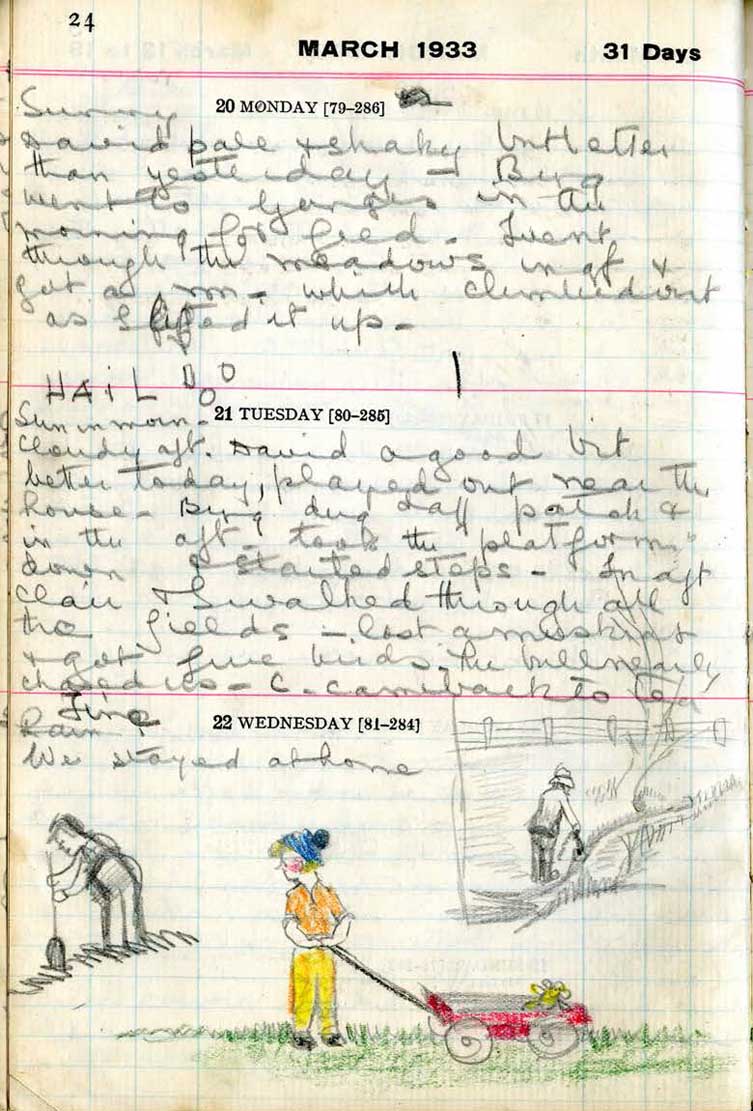 24
MARCH 1933 31 Days
Sunny 20 MONDAY [79-286]
David pale & shaky but better
than yesterday - 
went to Ganges in the
morning for feed. I went
through the meadows in aft &
got a m - which climbed out
as I lifted it up -
HAIL
Sun in morn - 21 TUESDAY [80-285]
cloudy aft. David a good bit
better today, played out near the
house - dug daff patch &
in the aft - took the platform
down & started steps - In aft
Clair & I walked through all
the fields - lost a muskrat
& got five birds. The bull nearly
chased us - C. came back to tea
Rain Fine 22 WEDNESDAY [81-284]
We stayed at home